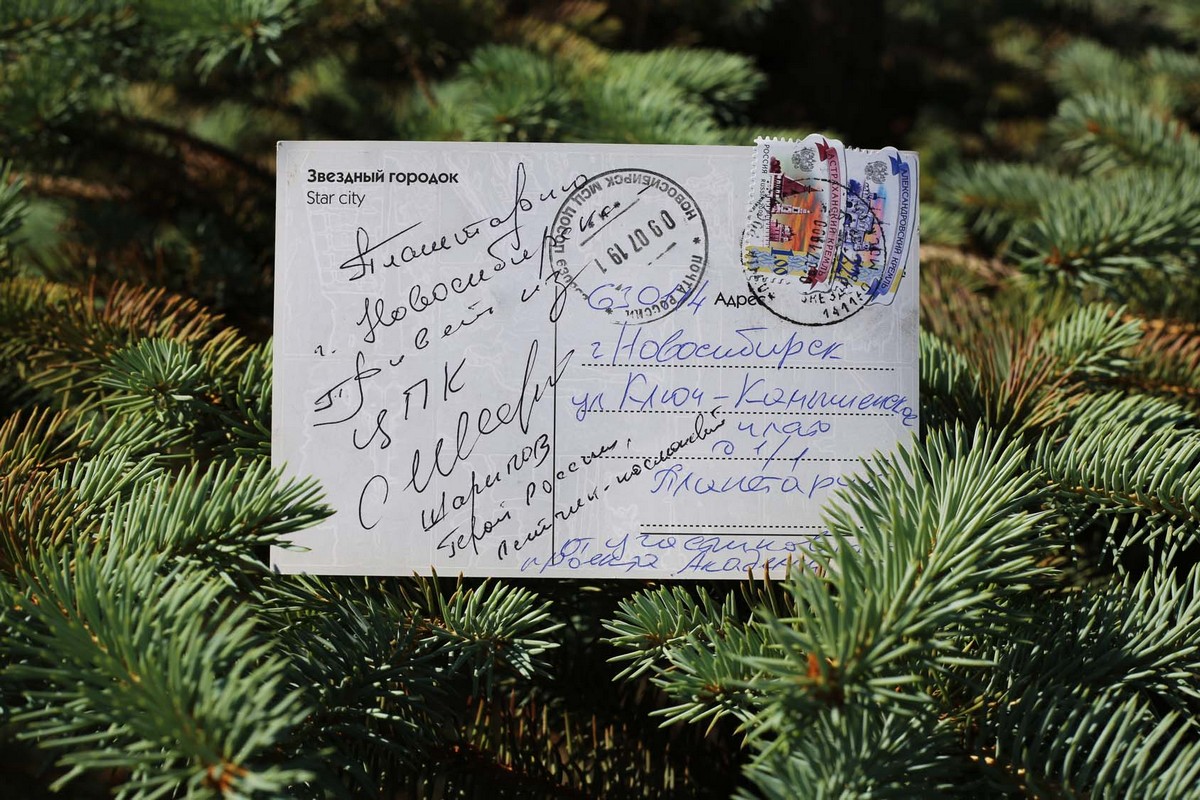 Звездный городок
Star city
Планетарию
г. Новосибирск
Привет из
ЦПК
Шарипов
Герой России,
летчик-космонавт
НОВОСИБИРСК МСЦ ЦОСПО1
09 07 19 1
* ПОЧТА РОССИИ *
РОССИЯ RUSSIA
АСТРАХАНСКИЙ КРЕМЛЬ
АЛЕКСАНДРОВСКИЙ КРЕМЛЬ
Адрес
г. Новосибирск
ул Ключ-Камышенское
плато
д 1/1
Планетар
от участников
проекта Академ